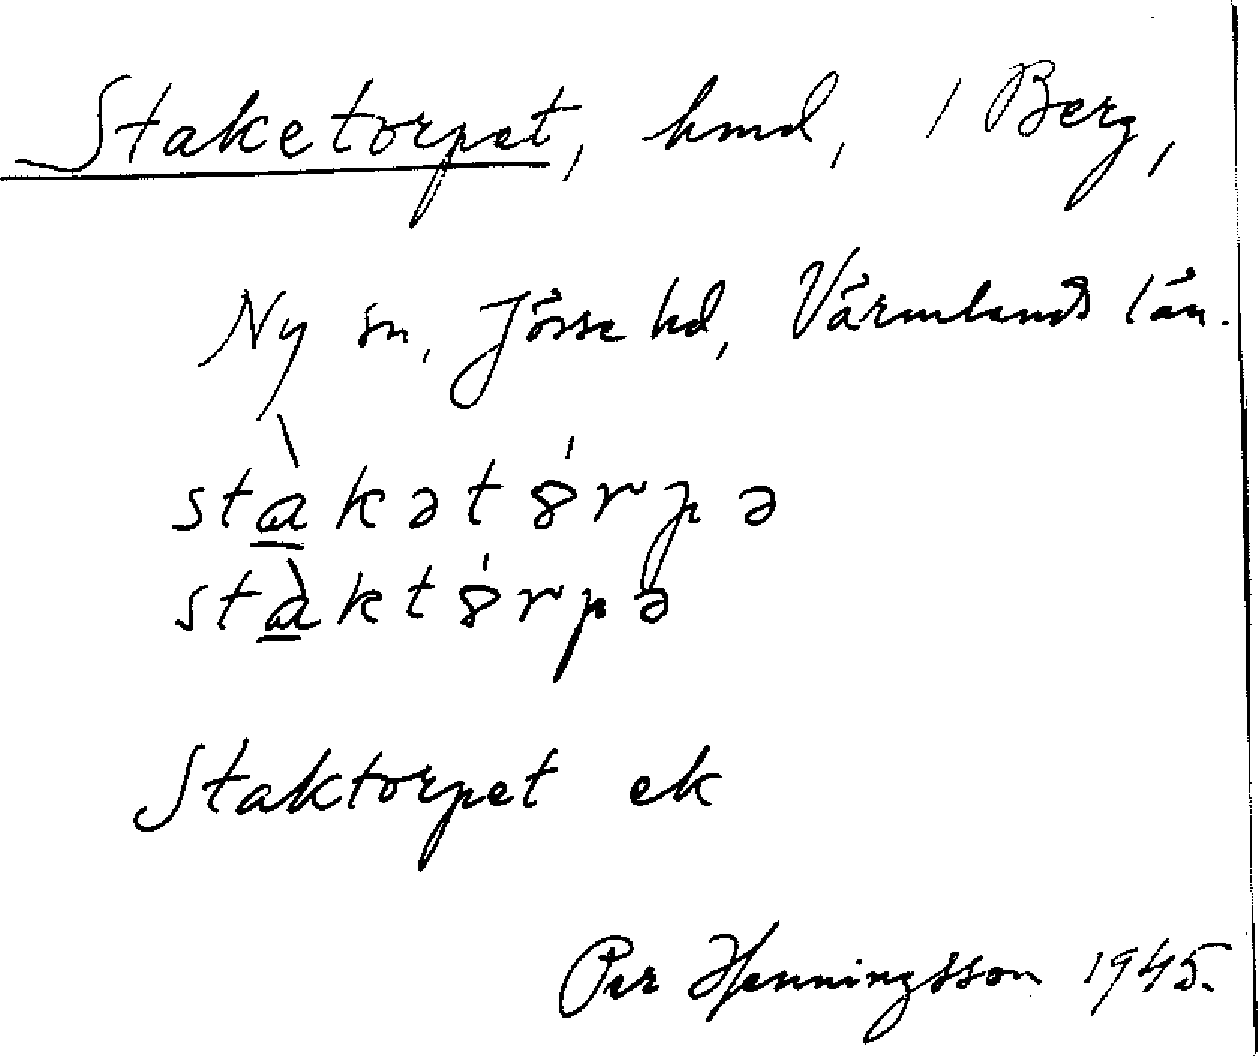 Staketorpet, hmd, 1 Berg,
Ny sn, Jösse hd, Värmlands län.
stὰ̲kətȣ́rpə
stὰ̲ktȣ́rpə
Staktorpet ek
Per Henningsson 1945.